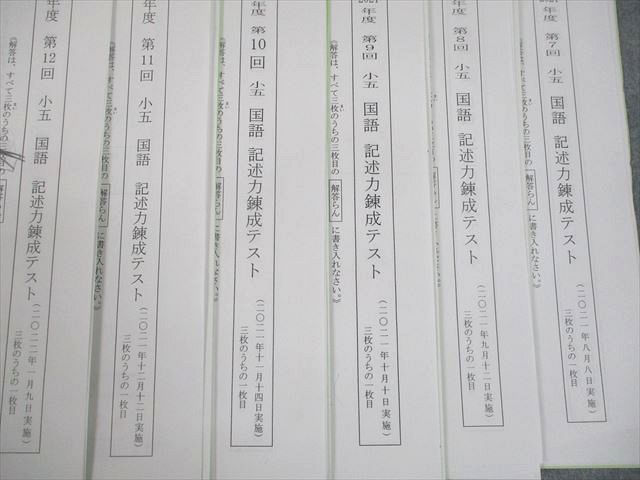 2021年度 第7回 小五 国語 記述力錬成テスト
(二〇二一年八月八日実施)
三枚のうちの一枚目
《解答は、すべて三枚のうちの三枚目の「解答らん」に書き入れなさい。》
年度 第8回 小五 国語 記述力錬成テスト
(二〇二一年九月十二日実施)
三枚のうちの一枚目
年度 第9回 小五 国語 記述力錬成テスト
(二〇二一年十月十日実施)
三枚のうちの一枚目
《解答は、すべて三枚のうちの三枚目の「解答らん」に書き入れなさい。》
年度 第10回 小五 国語 記述力錬成テスト
(二〇二一年十一月十四日実施)
三枚のうちの一枚目
《解答は、すべて三枚のうちの三枚目の「解答らん」に書き入れなさい。》
年度 第11回 小五 国語 記述力錬成テスト
(二〇二一年十二月十二日実施)
三枚のうちの一枚目
《解答は、すべて三枚のうちの三枚目の「解答らん」に書き入れなさい。》
年度 第12回 小五 国語 記述力錬成テスト
(二〇二二年一月九日実施)
三枚のうちの一枚目
《解答は、すべて三枚のうちの三枚目の「解答らん